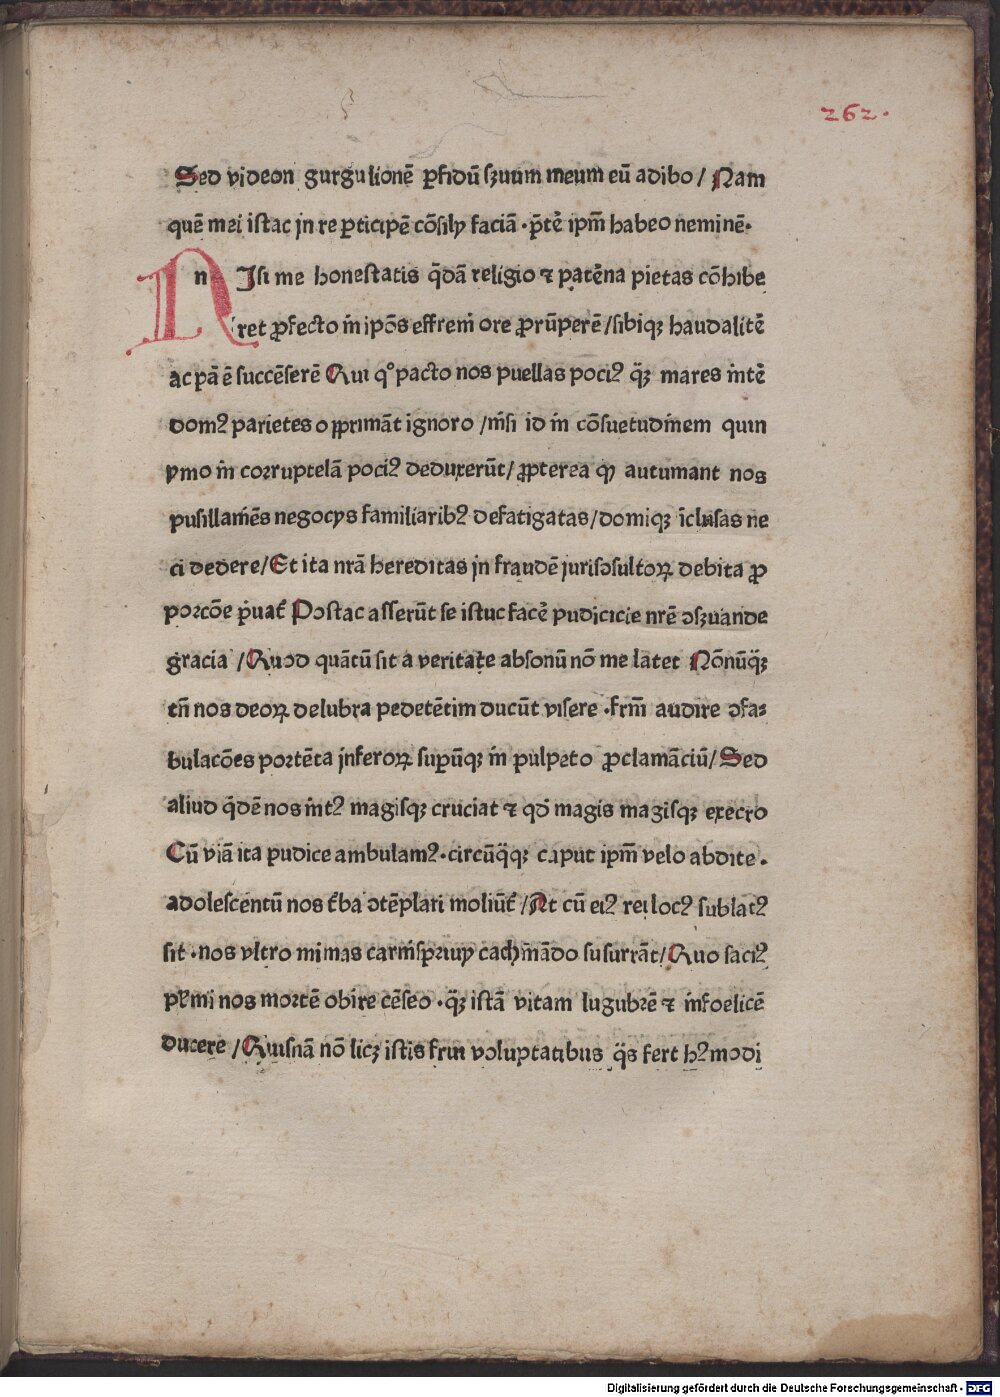 262.
Sed videon gurgulionē ꝑfidū ſzuum meum eū adibo / Nam
quē mei iſtac jn re ꝑticipē cōſily faciā · p̄tẻ ipm̄ habeo neminē·
n Jſi me honeſtatis q̄dā religio ⁊ patẻna pietas cōhibe
ret ꝓfecto m̄ ipōs effrem̄ ore ꝓrūperē / ſibiqꝫ haudalitē
ac pā ē ſuccēſerē Qui qͦ pacto nos puellas pociꝰ q̄ꝫ mares m̄tẻ
domꝰ parietes opprimāt ignoro / nı̄ſi id in cōſuetudīnem quin
ymo in corruptelā pociꝰ deduxerūt / ꝓpterea qꝫ autumant nos
puſillaīēs negocys familiaribꝰ defatigatas / domiqꝫ īcluſas ne
ci dedere / Et ita nrā hereditas jn fraudē iuriſↄſultoꝝ debita ꝓ
porcōe p̄uat᷑ Poſtac aſſerūt ſe iſtuc facẻ pudicicie nrē ↄſzuande
gracia / Quod quātū ſit a veritate abſonū nō me latet Nōnūq̄ꝫ
tn̄ nos deoꝝ delubra pedetētim ducūt viſere · frm̄ audire ↄfa⸗
bulacōes portēta jnferoꝝ ſupūqꝫ in pulpeto ꝓclamāciū / Sed
aliud q̄dē nos m̄tꝰ magiſqꝫ cruciat ⁊ qd̄ magis magiſqꝫ execro
Cū viā ita pudice ambulamꝰ · circūq̄qꝫ caput ipm̄ velo abdite ·
adoleſcentū nos t᷑ba ↄtēplari moliūt᷑ / At cū eiꝰ rei locꝰ ſublatꝰ
ſit · nos vltro mimas cachīnādo ſuſurrāt / Quo ſaciꝰ
nos mortē obire cēſeo · q̄ꝫ iſtā vitam lugubrē ⁊ īnfoelicē
ducere / Quiſnā nō licꝫ iſtis frui voluptatibus q̄s fert hꝰmodi
Digitalisierung gefördert durch die Deutsche Forschungsgemeinschaft - DFG